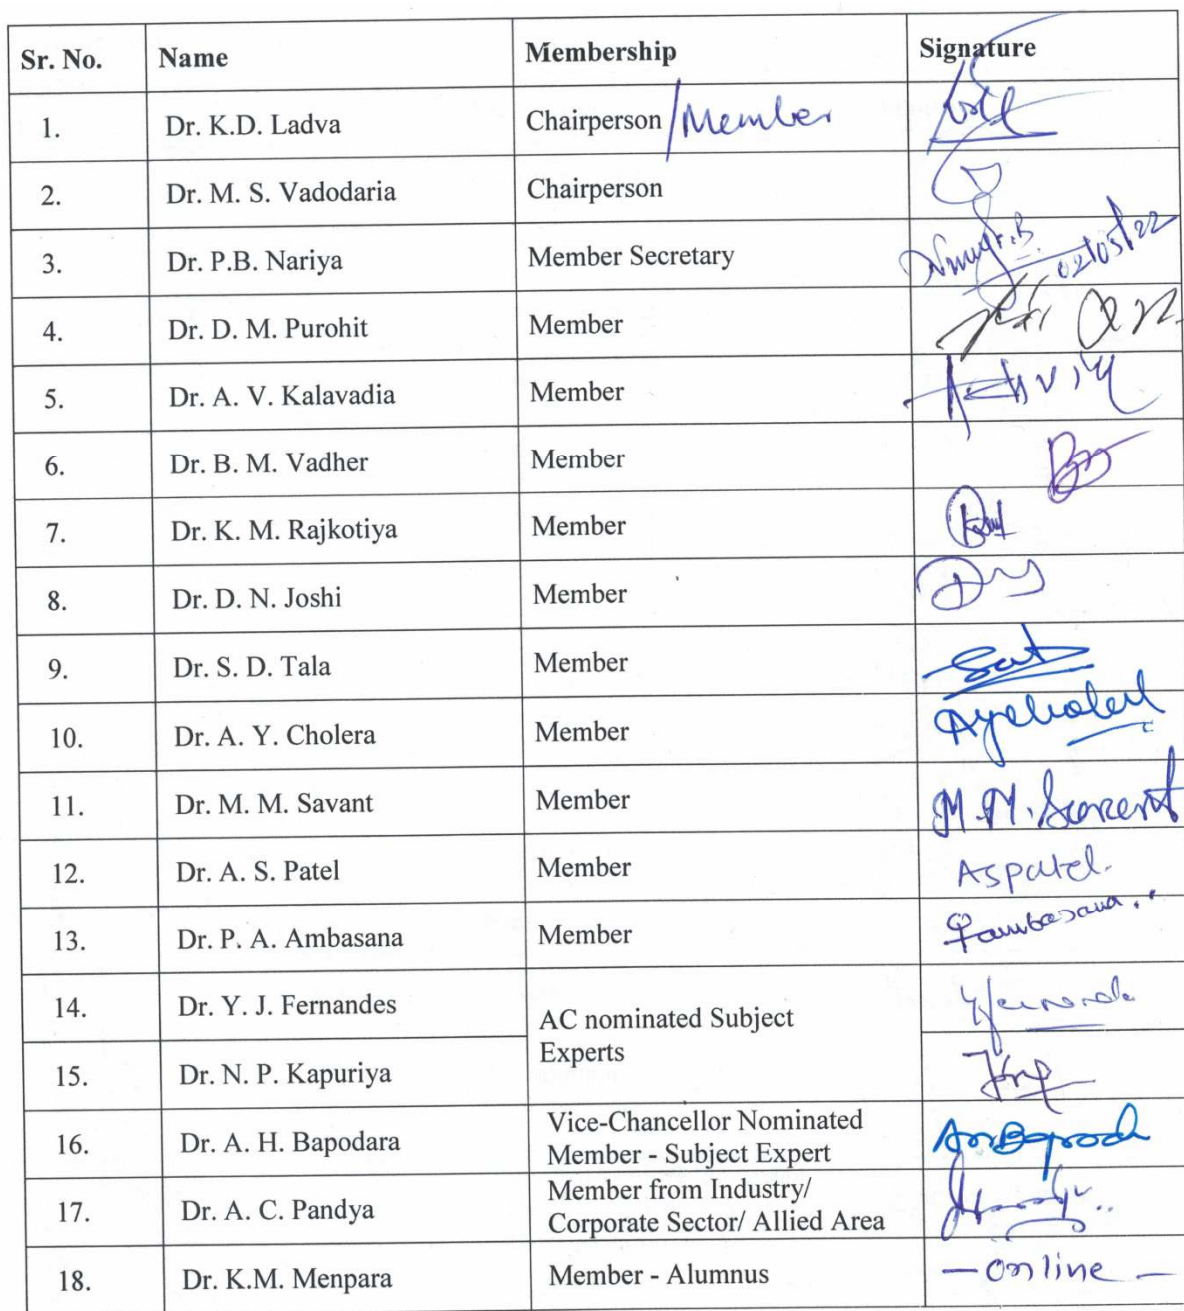 Sr. No. Name Membership Signature
1. Dr. K.D. Ladva Chairperson /Member
2. Dr. M. S. Vadodaria Chairperson
3. Dr. P.B. Nariya Member Secretary 02/05/22
4. Dr. D. M. Purohit Member
5. Dr. A. V. Kalavadia Member
6. Dr. B. M. Vadher Member
7. Dr. K. M. Rajkotiya Member
8. Dr. D. N. Joshi Member
9. Dr. S. D. Tala Member
10. Dr. A. Y. Cholera Member
11. Dr. M. M. Savant Member M.M.
12. Dr. A. S. Patel Member ASPatel.
13. Dr. P. A. Ambasana Member Pambasana..
14. Dr. Y. J. Fernandes
AC nominated Subject
Experts
15. Dr. N. P. Kapuriya
16. Dr. A. H. Bapodara Vice-Chancellor Nominated
Member - Subject Expert
17. Dr. A. C. Pandya Member from Industry/
Corporate Sector/ Allied Area
18. Dr. K.M. Menpara Member - Alumnus - online -